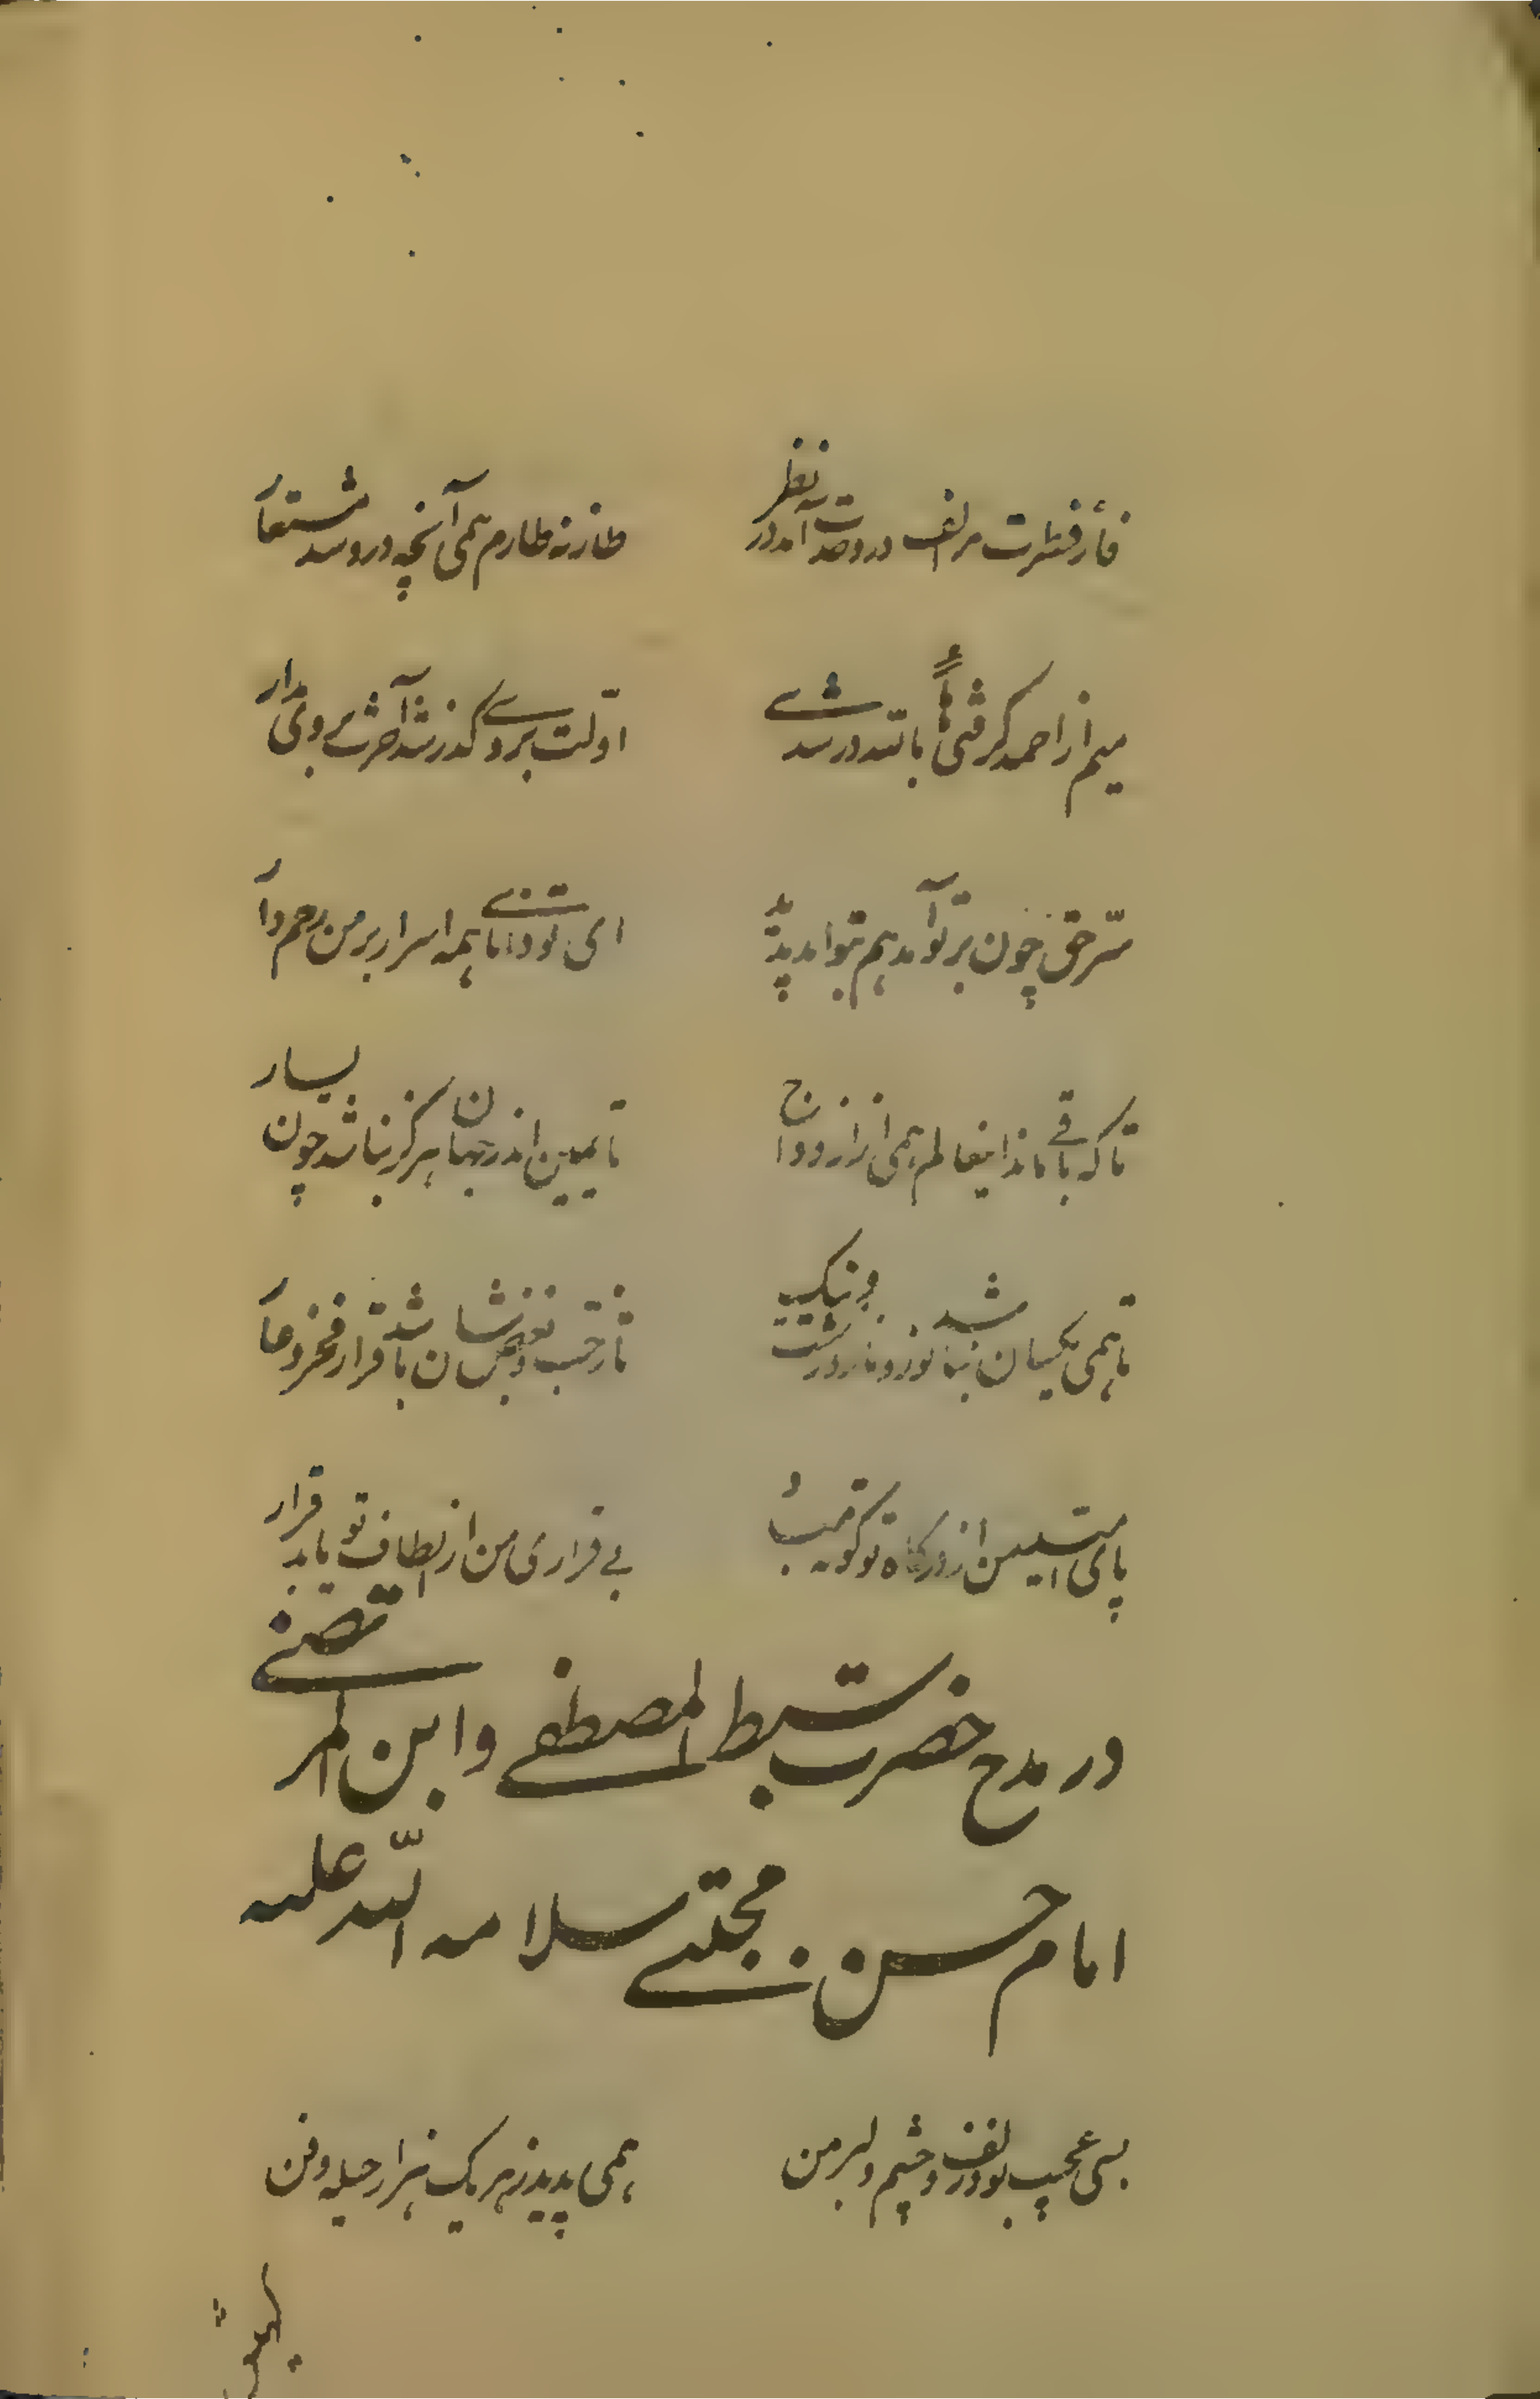 فأر فطرت مر الف در وحدت آمد در نظر طارنه طارم همی آنچه در وسد مستعار
میم از احمد گرفتی باتند ور سدے اولت بردے گذر شد آخرت بروی مدار
سرّ حق چون بر تو آمد هم بتو آمد پدید ای تو دانا همه اسرار بر من رحم دار
تا که باقے ماند اینعالم همی از ازدواج تا یمین اندر جهان هرگز نباشد چون یسار
تا همی یکسان نباشد نور و نار و زشت و نیک تا ز حب و بغضشان باشد قرار فخر و عار
پای از درگاه تو بی قراری من از الطاف تو یابد قرار
در مدح حضرت سبط المصطفے و ابن المرتضے
امام حسن مجتبے سلام اللّه علیه
بسی عجیب بود زلف و چشم دلبر من همی پدید ز هر یک هزار حیله و فن